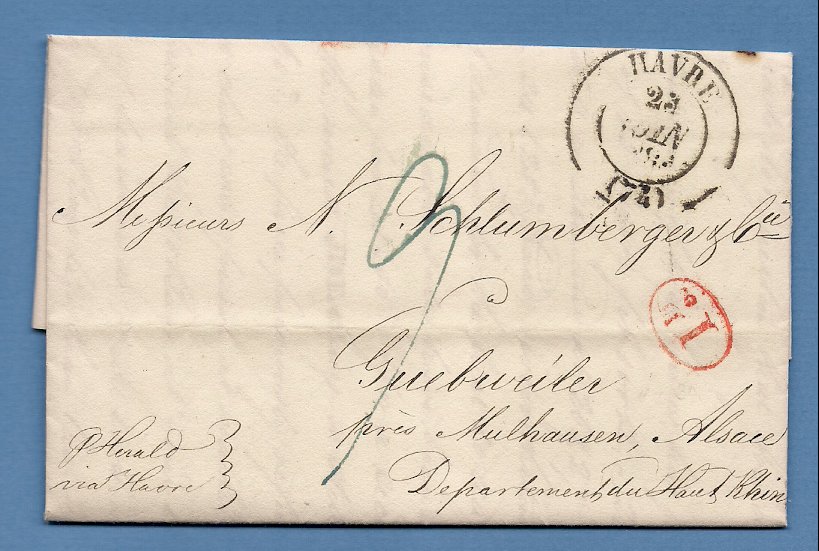 HAVRE
23
JUIN
(74)
Messieurs N. Schlumberger & Cie
à
Guebweiler
près Mulhausen, Alsace
Departement du Haut Rhin
p Herald
via Havre
9